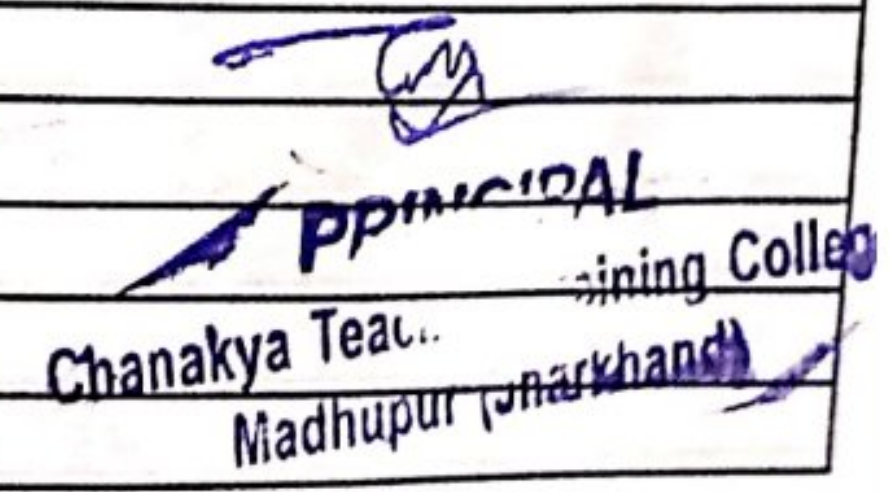 PRINCIPAL
Chanakya Teac.. ..ining College
Madhupur (Jharkhand)